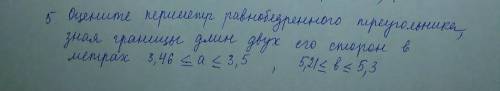 5 Оцените периметр равнобедренного треугольника,
зная границы длин двух его сторон в
метрах 3,46 ≤ a ≤ 3,5 , 5,21 ≤ в ≤ 5,3